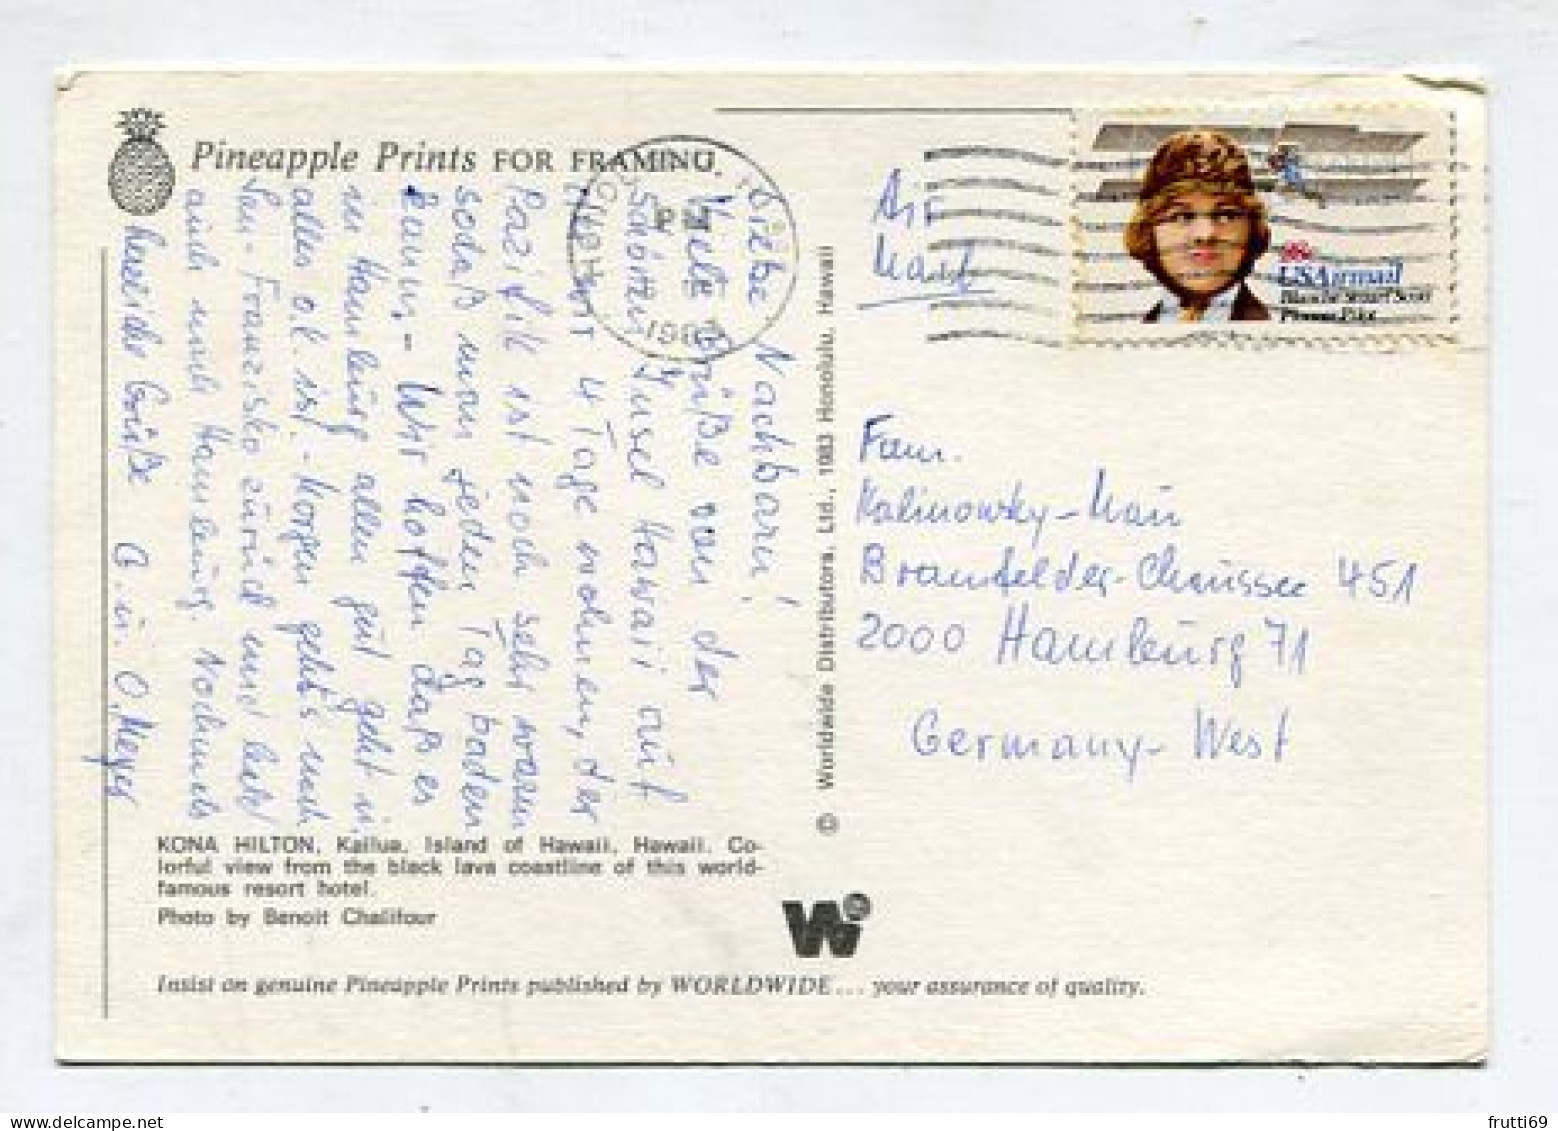 Pineapple Prints FOR FRAMING.
Liebe Nachbarn!
Viele Grüße von der
schönen Insel Hawaii auf
der wir 4 Tage wohnen, der
Pazifik ist noch sehr warm
sodaß man jeden Tag baden
kann. - Wir hoffen daß es
in Hamburg allen gut geht u.
alles o.k. ist. - Morgen geht's nach
San-Franzisko zurück und bald
auch nach Hamburg. Nochmals
herzliche Grüße G. u. O. Meyer
KONA HILTON, Kailua, Island of Hawaii, Hawaii. Co-
lorful view from the black lava coastline of this world-
famous resort hotel.
Photo by Benoit Chalifour
Insist on genuine Pineapple Prints published by WORLDWIDE... your assurance of quality.
© Worldwide Distributors, Ltd., 1983 Honolulu, Hawaii
W
HONOLULU
PM
198
Air
Mail
USAirmail
Blanche Stuart Scott
Pioneer Pilot
Fam.
Kalinowsky-Mau
Bramfelder-Chaussee 451
2000 Hamburg 71
Germany-West
frutti69